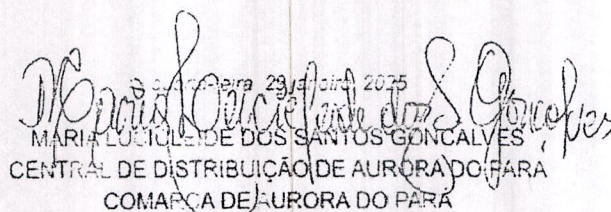 29 janeiro 2025
Maria Lucicleide dos S. Gonçalves
MARIA LUCICLEIDE DOS SANTOS GONCALVES
CENTRAL DE DISTRIBUIÇÃO DE AURORA DO PARÁ
COMARCA DE AURORA DO PARÁ